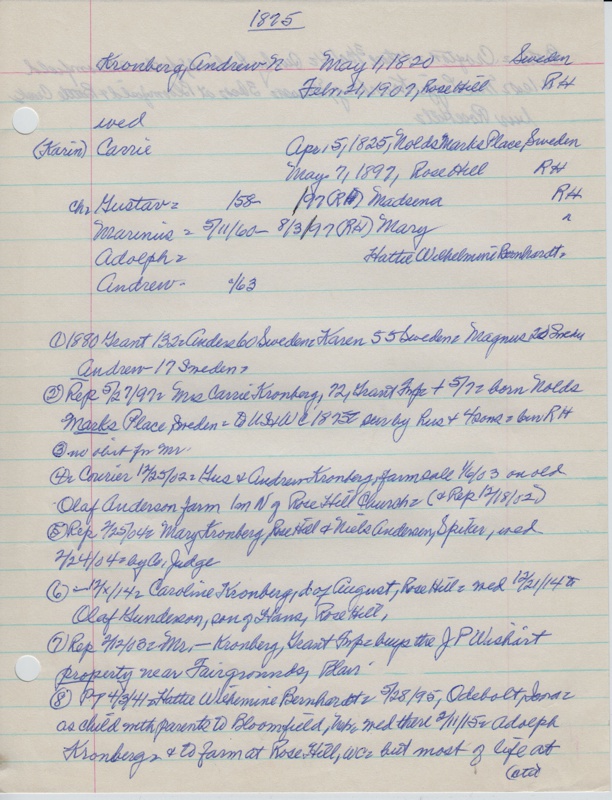 1875
Kronberg, Andrew N May 1, 1820 Sweden
Feb. 21, 1907, Rose Hill RH
wed
(Karin) Carrie Apr 5, 1825, Nolds Marks Place, Sweden
May 7, 1897, Rose Hill RH
ch= Gustav= 158- /97 (RH) Madsena RH
Marinus = 5/11/60- 8/3/97 (RH) Mary "
Adolph= Hattie Wilhelmine Bernhardt=
Andrew- 4/63
① 1880 Grant 132= Anders 60 Sweden= Karen 55 Sweden= Magnus 20 Sweden
Andrew 17 Sweden=
② Rep 5/27/97= Mrs Carrie Kronberg, 72, Grant Twp + 5/7= born Nolds
Marks Place Sweden= to US+WC 1875= surv by hus + 4 sons= bur RH
③ no obit for Mr.
④ Courier 12/25/02= Gus & Andrew Kronberg, farm sale 1/6/03 on old
Olaf Anderson farm 1m N of Rose Hill Church= (& Rep 12/18/02)
⑤ Rep 2/25/04= Mary Kronberg, Rose Hill & Niels Anderson, Spiker, wed
2/24/04= by Co, Judge
⑥ -12/x/14= Caroline Kronberg, d of August, Rose Hill= wed 12/21/14 to
Olaf Gunderson, son of Hans, Rose Hill,
⑦ Rep 2/12/03= Mr, - Kronberg, Grant Twp= buys the J P Wishart
property near Fairgrounds, Blair
⑧ PT 4/3/41= Hattie Wilhemine Bernhardt= 5/28/95, Odebolt, Iowa=
as child with parents to Bloomfield, Neb= wed there 2/11/15= Adolph
Kronberg= & to farm at Rose Hill, WC= but most of life at
(over)